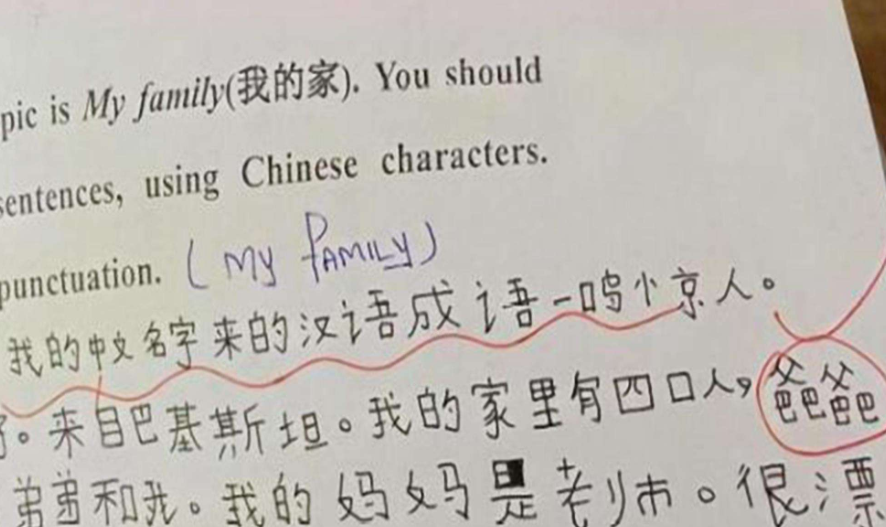 pic is My family(我的家). You should
sentences, using Chinese characters.
punctuation. (My FAMILY)
我的中文名字来的汉语成语一鸣小京人。
。来自巴基斯坦。我的家里有四口人,爸爸
弟弟和我。我的妈妈是老师。很漂